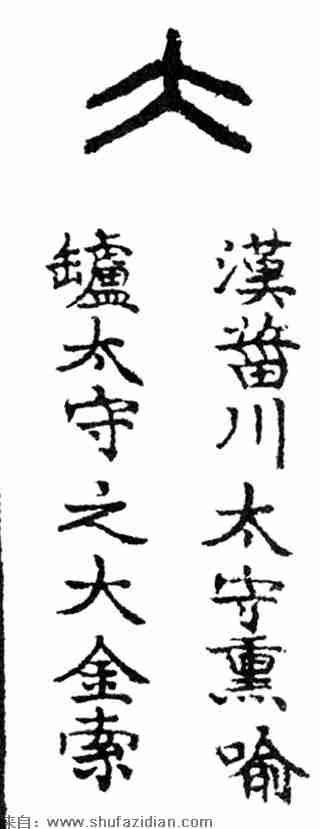 大
漢菑川太守熏喻
罏太守之大金索
来自：www.shufazidian.com